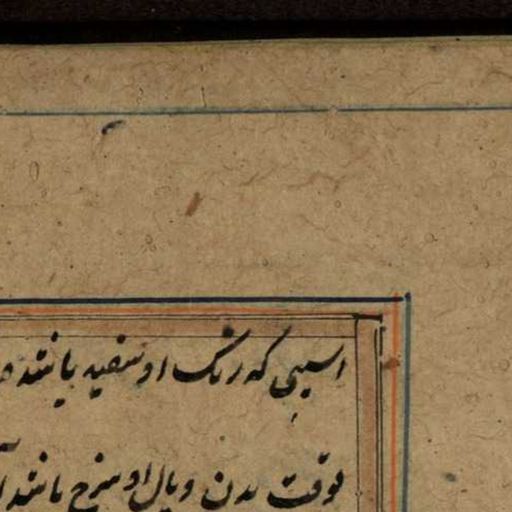 اسپی که رنگ او سفید باشد
بوقت بدن و یال او سرخ باشد